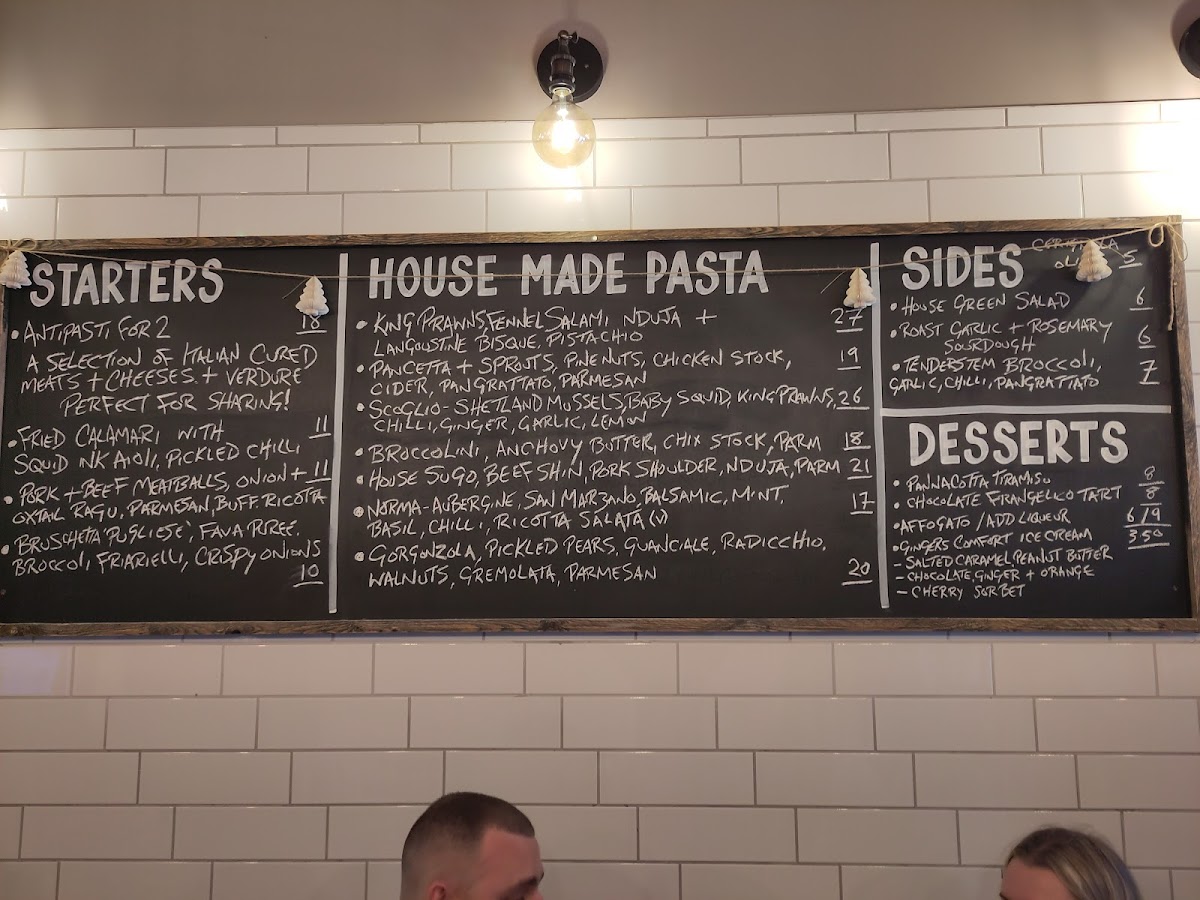 STARTERS
• ANTIPASTI FOR 2 18
A SELECTION OF ITALIAN CURED
MEATS + CHEESES. + VERDURE
PERFECT FOR SHARING!
• FRIED CALAMARI WITH 11
SQUID INK AIOLI, PICKLED CHILLI
• PORK + BEEF MEATBALLS, ONION + 11
OXTAIL RAGU, PARMESAN, BUFF. RICOTTA
• BRUSCHETTA 'PUGLIESE', FAVA PUREE.
BROCCOLI, FRIARIELLI, CRISPY ONIONS
10
HOUSE MADE PASTA
• KING PRAWNS, FENNEL SALAMI, NDUJA + 27
LANGOUSTINE BISQUE. PISTACHIO
• PANCETTA + SPROUTS, PINENUTS, CHICKEN STOCK, 19
CIDER, PANGRATTATO, PARMESAN
• SCOGLIO - SHETLAND MUSSELS, BABY SQUID, KING PRAWNS, 26
CHILLI, GINGER, GARLIC, LEMON
• BROCCOLINI, ANCHOVY BUTTER, CHIX STOCK, PARM 18
• HOUSE SUGO, BEEF SHIN, PORK SHOULDER, NDUJA, PARM 21
• NORMA - AUBERGINE, SAN MARZANO, BALSAMIC, MINT, 17
BASIL, CHILLI, RICOTTA SALATA (V)
• GORGONZOLA, PICKLED PEARS, GUANCIALE, RADICCHIO.
WALNUTS, GREMOLATA, PARMESAN 20
SIDES
5
• HOUSE GREEN SALAD 6
• ROAST GARLIC + ROSEMARY
SOURDOUGH 6
• TENDERSTEM BROCCOLI, 7
GARLIC, CHILLI, PANGRATTATO
DESSERTS
• PANNACOTTA TIRAMISU 8
• CHOCOLATE FRANGELICO TART 8
• AFFOGATO / ADD LIQUEUR 6/9
• GINGERS COMFORT ICE CREAM 3.50
- SALTED CARAMEL, PEANUT BUTTER
- CHOCOLATE, GINGER + ORANGE
- CHERRY SORBET